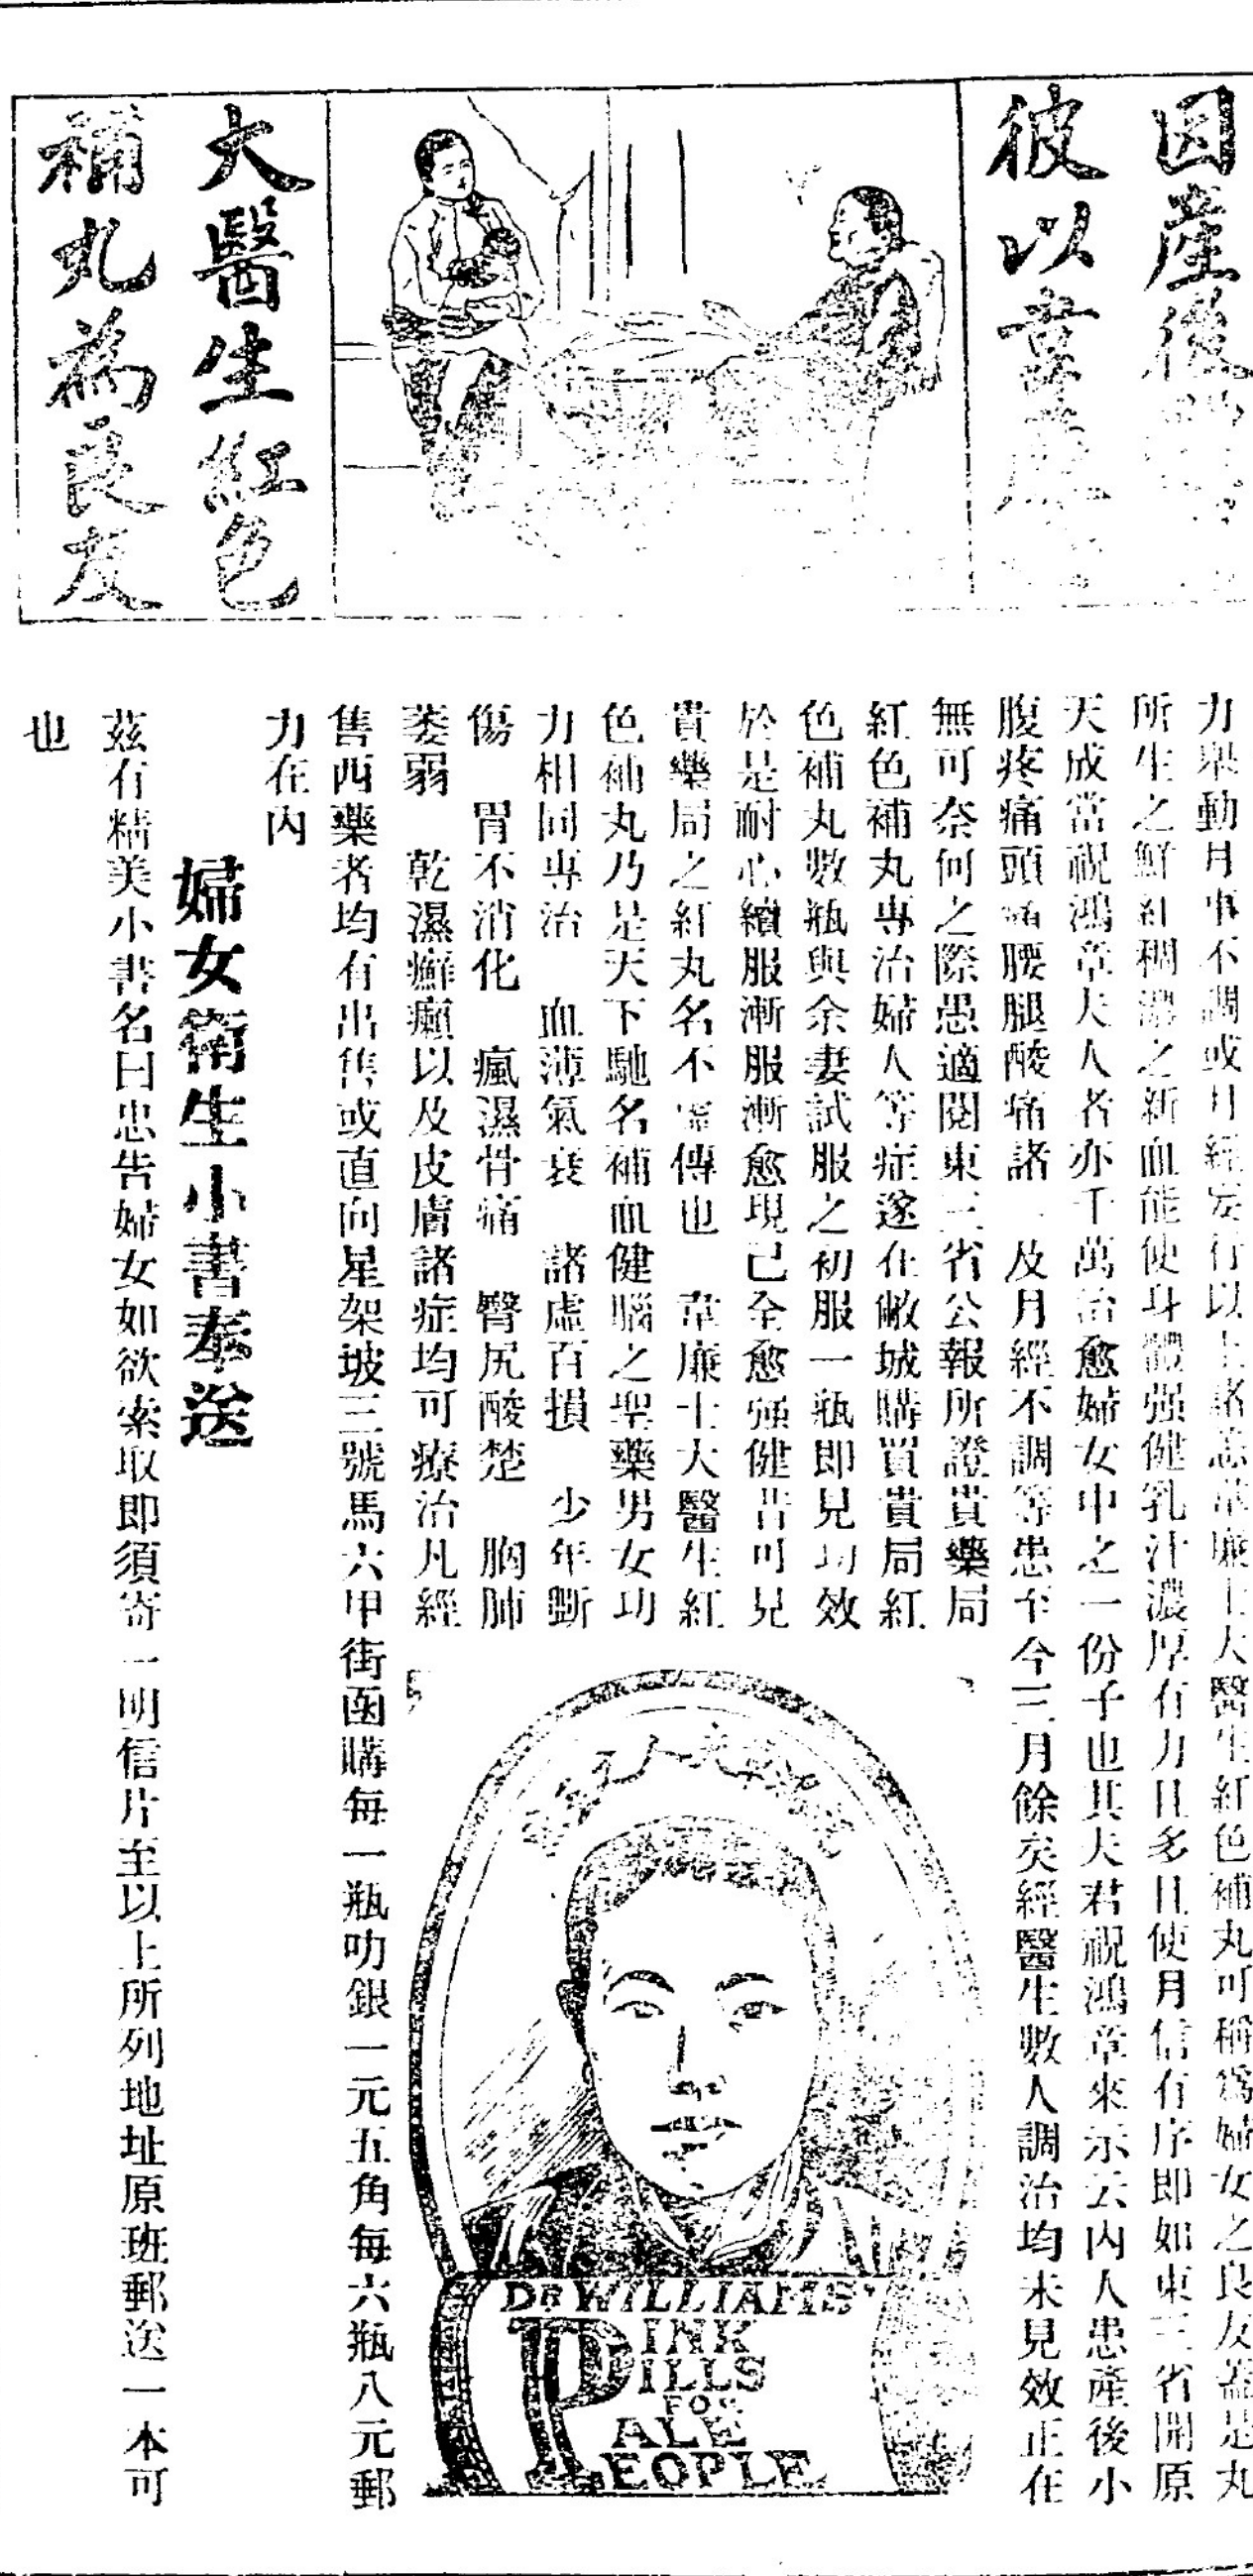 因產後
彼以韋廉
大醫生紅色
補丸為良友
力舉動月事不調或月經妄行以上諸恙韋廉士大醫生紅色補丸可稱爲婦女之良友蓋是丸
所生之鮮紅稠濃之新血能使身體强健乳汁濃厚有力且多且使月信有序即如東三省開原
天成當祝鴻章夫人者亦千萬治愈婦女中之一份子也其夫君祝鴻章來示云內人患產後小
腹疼痛頭痛腰腿酸痛諸 及月經不調等患至今三月餘矣經醫生數人調治均未見效正在
無可奈何之際愚適閱東三省公報所證貴藥局
紅色補丸專治婦人等症遂在敝城購買貴局紅
色補丸數瓶與余妻試服之初服一瓶即見功效
於是耐心續服漸服漸愈現已全愈强健昔可見
貴藥局之紅丸名不虛傳也 韋廉士大醫生紅
色補丸乃是天下馳名補血健腦之聖藥男女功
力相同專治 血薄氣衰 諸虛百損 少年斲
傷 胃不消化 瘋濕骨痛 臀尻酸楚 胸肺
萎弱 乾濕癬癩以及皮膚諸症均可療治凡經
售西藥者均有出售或直向星架坡三號馬六甲街函購每一瓶叻銀一元五角每六瓶八元郵
力在內
婦女衛生小書奉送
茲有精美小書名曰忠告婦女如欲索取即須寄一明信片至以上所列地址原班郵送一本可
也
DR WILLIAMS'
PINK
PILLS
FOR
PALE
PEOPLE